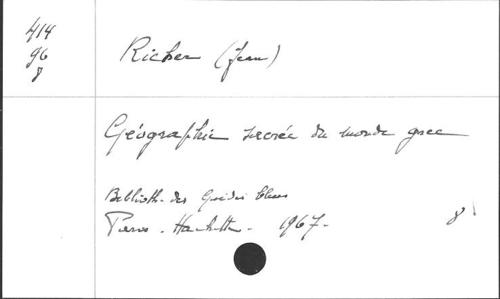 414
96
8
Richer (Jean)
Géographie sacrée du monde grec
Biblioth. des Guides bleus
Paris. Hachette. 1967. 8°